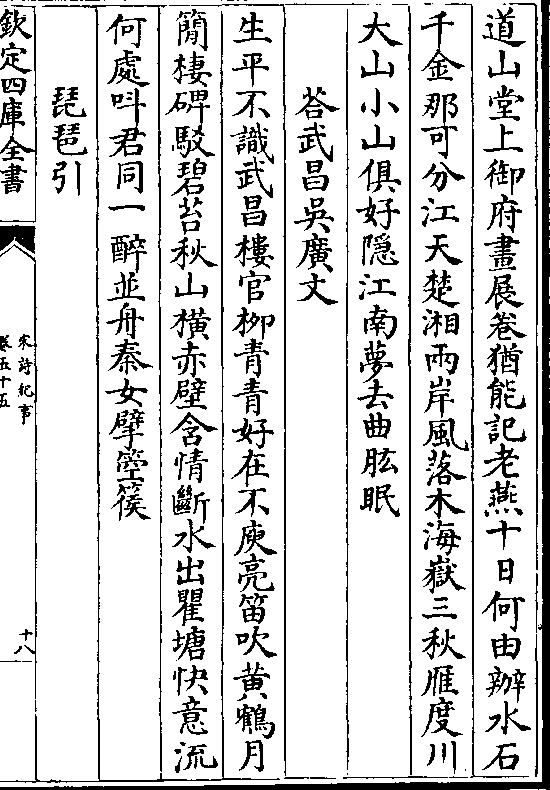 道山堂上御府畫展卷猶能記老燕十日何由辦水石
千金那可分江天楚湘兩岸風落木海嶽三秋雁度川
大山小山俱好隱江南夢去曲肱眠
荅武昌吳廣文
生平不識武昌樓官柳青青好在不庾亮笛吹黄鶴月
簡棲碑駁碧苔秋山横赤壁含情斷水出瞿塘快意流
何處呌君同一醉並舟秦女擘箜篌
琵琶引
欽定四庫全書
宋詩紀事
卷五十五
十八